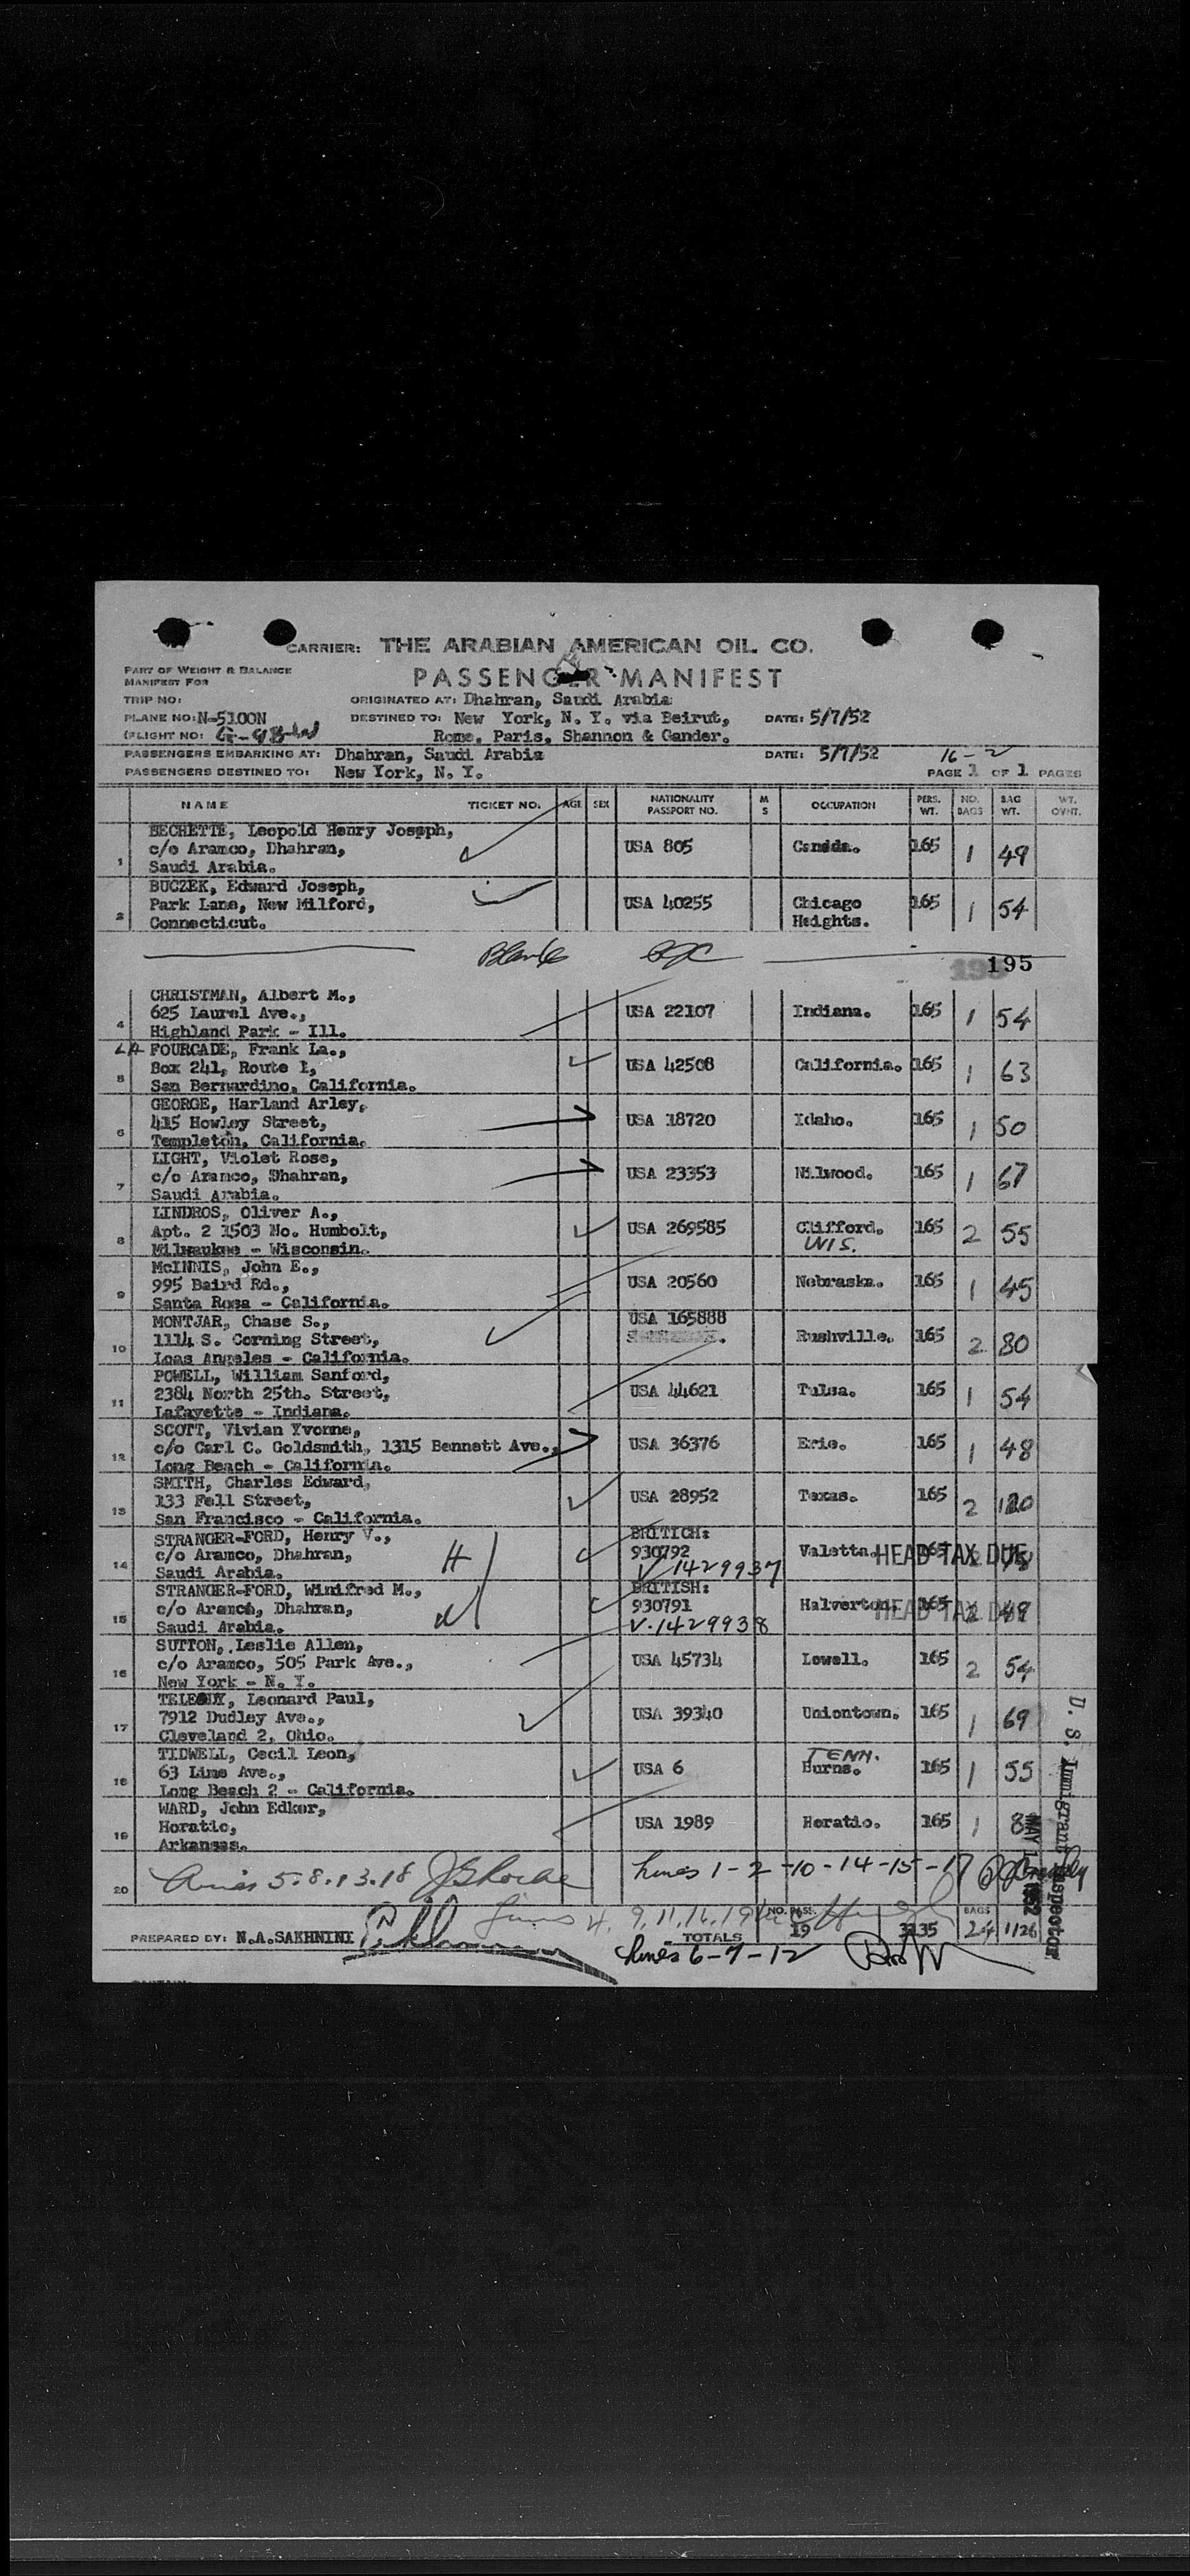 CARRIER: THE ARABIAN AMERICAN OIL CO.
PART OF WEIGHT & BALANCE
MANIFEST FOR
PASSENGER MANIFEST
TRIP NO: ORIGINATED AT: Dhahran, Saudi Arabia
PLANE NO: N-5100N DESTINED TO: New York, N. Y. via Beirut, DATE: 5/7/52
FLIGHT NO: Rome, Paris, Shannon & Gander.
PASSENGERS EMBARKING AT: Dhahran, Saudi Arabia DATE: 5/7/52 16-2
PASSENGERS DESTINED TO: New York, N. Y. PAGE 1 OF 1 PAGES
NAME TICKET NO. AGE SEX NATIONALITY PASSPORT NO. M S OCCUPATION PERS. WT. NO. BAGS BAG WT. WT. OVNT.
BECHETTE, Leopold Henry Joseph,
c/o Aramco, Dhahran, USA 805 Canada. 165 1 49
1 Saudi Arabia.
BUCZEK, Edward Joseph,
Park Lane, New Milford, USA 40255 Chicago 165 1 54
2 Connecticut. Heights.
Blank
195
CHRISTMAN, Albert M.,
625 Laurel Ave., USA 22107 Indiana. 165 1 54
4 Highland Park - Ill.
LA FOURCADE, Frank La.,
Box 241, Route 1, USA 42508 California. 165 1 63
5 San Bernardino, California.
GEORGE, Harland Arley,
415 Howley Street, USA 18720 Idaho. 165 1 50
6 Templeton, California.
LIGHT, Violet Rose,
c/o Aramco, Dhahran, USA 23353 Nilwood. 165 1 67
7 Saudi Arabia.
LINDROS, Oliver A.,
Apt. 2 1503 No. Humbolt, USA 269585 Clifford. 165 2 55
8 Milwaukee - Wisconsin. WIS.
McINNIS, John E.,
995 Baird Rd., USA 20560 Nebraska. 165 1 45
9 Santa Rosa - California.
MONTJAR, Chase S., USA 165888
1114 S. Corning Street, Rushville. 165 2 80
10 Loas Angeles - California.
POWELL, William Sanford,
2384 North 25th. Street, USA 44621 Tulsa. 165 1 54
11 Lafayette - Indiana.
SCOTT, Vivian Yvonne,
c/o Carl C. Goldsmith, 1315 Bennett Ave., USA 36376 Erie. 165 1 48
12 Long Beach - California.
SMITH, Charles Edward,
133 Fell Street, USA 28952 Texas. 165 2 120
13 San Francisco - California.
STRANGER-FORD, Henry V., BRITICH:
c/o Aramco, Dhahran, H 930792 Valetta. 165 HEAD TAX DUE
14 Saudi Arabia. V 1429937
STRANGER-FORD, Winifred M., BRITISH:
c/o Aramco, Dhahran, W 930791 Halverton. 165 HEAD TAX DUE 49
15 Saudi Arabia. V-1429938
SUTTON, Leslie Allen,
c/o Aramco, 505 Park Ave., USA 45734 Lowell. 165 2 54
16 New York - N. Y.
Leonard Paul,
7912 Dudley Ave., USA 39340 Uniontown. 165 1 69
17 Cleveland 2, Ohio.
TIDWELL, Cecil Leon, TENN.
63 Lime Ave., USA 6 Burns. 165 1 55
18 Long Beach 2 - California.
WARD, John Edker,
Horatio, USA 1989 Horatio. 165 1
19 Arkansas.
20 Lines 5.8.13.18 Lines 1-2-10-14-15-17
Lines 4, 9, 11, 16, 19
PREPARED BY: N.A.SAKHNINI TOTALS NO. PASS. 19 3135 BAGS 24 1126
Lines 6-7-12
U. S. Immigrant Inspector
MAY 1952